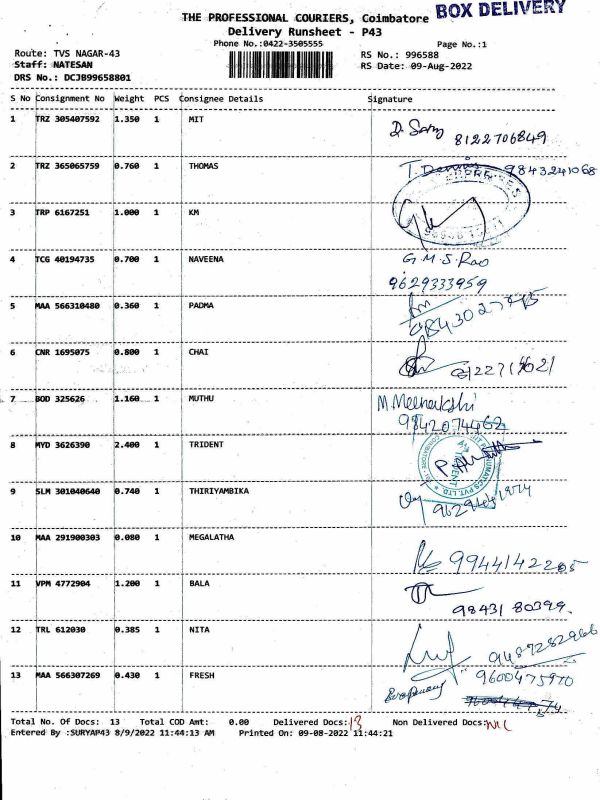 BOX DELIVERY
THE PROFESSIONAL COURIERS, Coimbatore
Delivery Runsheet - P43
Phone No.:0422-3505555
Page No.:1
Route: TVS NAGAR-43
RS No.: 996588
Staff: NATESAN
RS Date: 09-Aug-2022
DRS No.: DCJB99658801
S No Consignment No Weight PCS Consignee Details Signature
1 TRZ 305407592 1.350 1 MIT
8122706849
2 TRZ 365065759 0.760 1 THOMAS 9843241068
3 TRP 6167251 1.000 1 KM
4 TCG 40194735 0.700 1 NAVEENA G.M.S.Rao
9629333959
5 MAA 566310480 0.360 1 PADMA
6 CNR 1695075 0.800 1 CHAI
7 BOD 325626 1.160 1 MUTHU M.Meenakshi
9842074462
8 MYD 3626390 2.400 1 TRIDENT
9 SLM 301040640 0.740 1 THIRIYAMBIKA
10 MAA 291900303 0.080 1 MEGALATHA
11 VPM 4772904 1.200 1 BALA
98431 80399.
12 TRL 612030 0.385 1 NITA
9487282966
13 MAA 566307269 0.430 1 FRESH 9600475970
Total No. Of Docs: 13 Total COD Amt: 0.00 Delivered Docs: 13 Non Delivered Docs: NIL
Entered By :SURYAP43 8/9/2022 11:44:13 AM Printed On: 09-08-2022 11:44:21